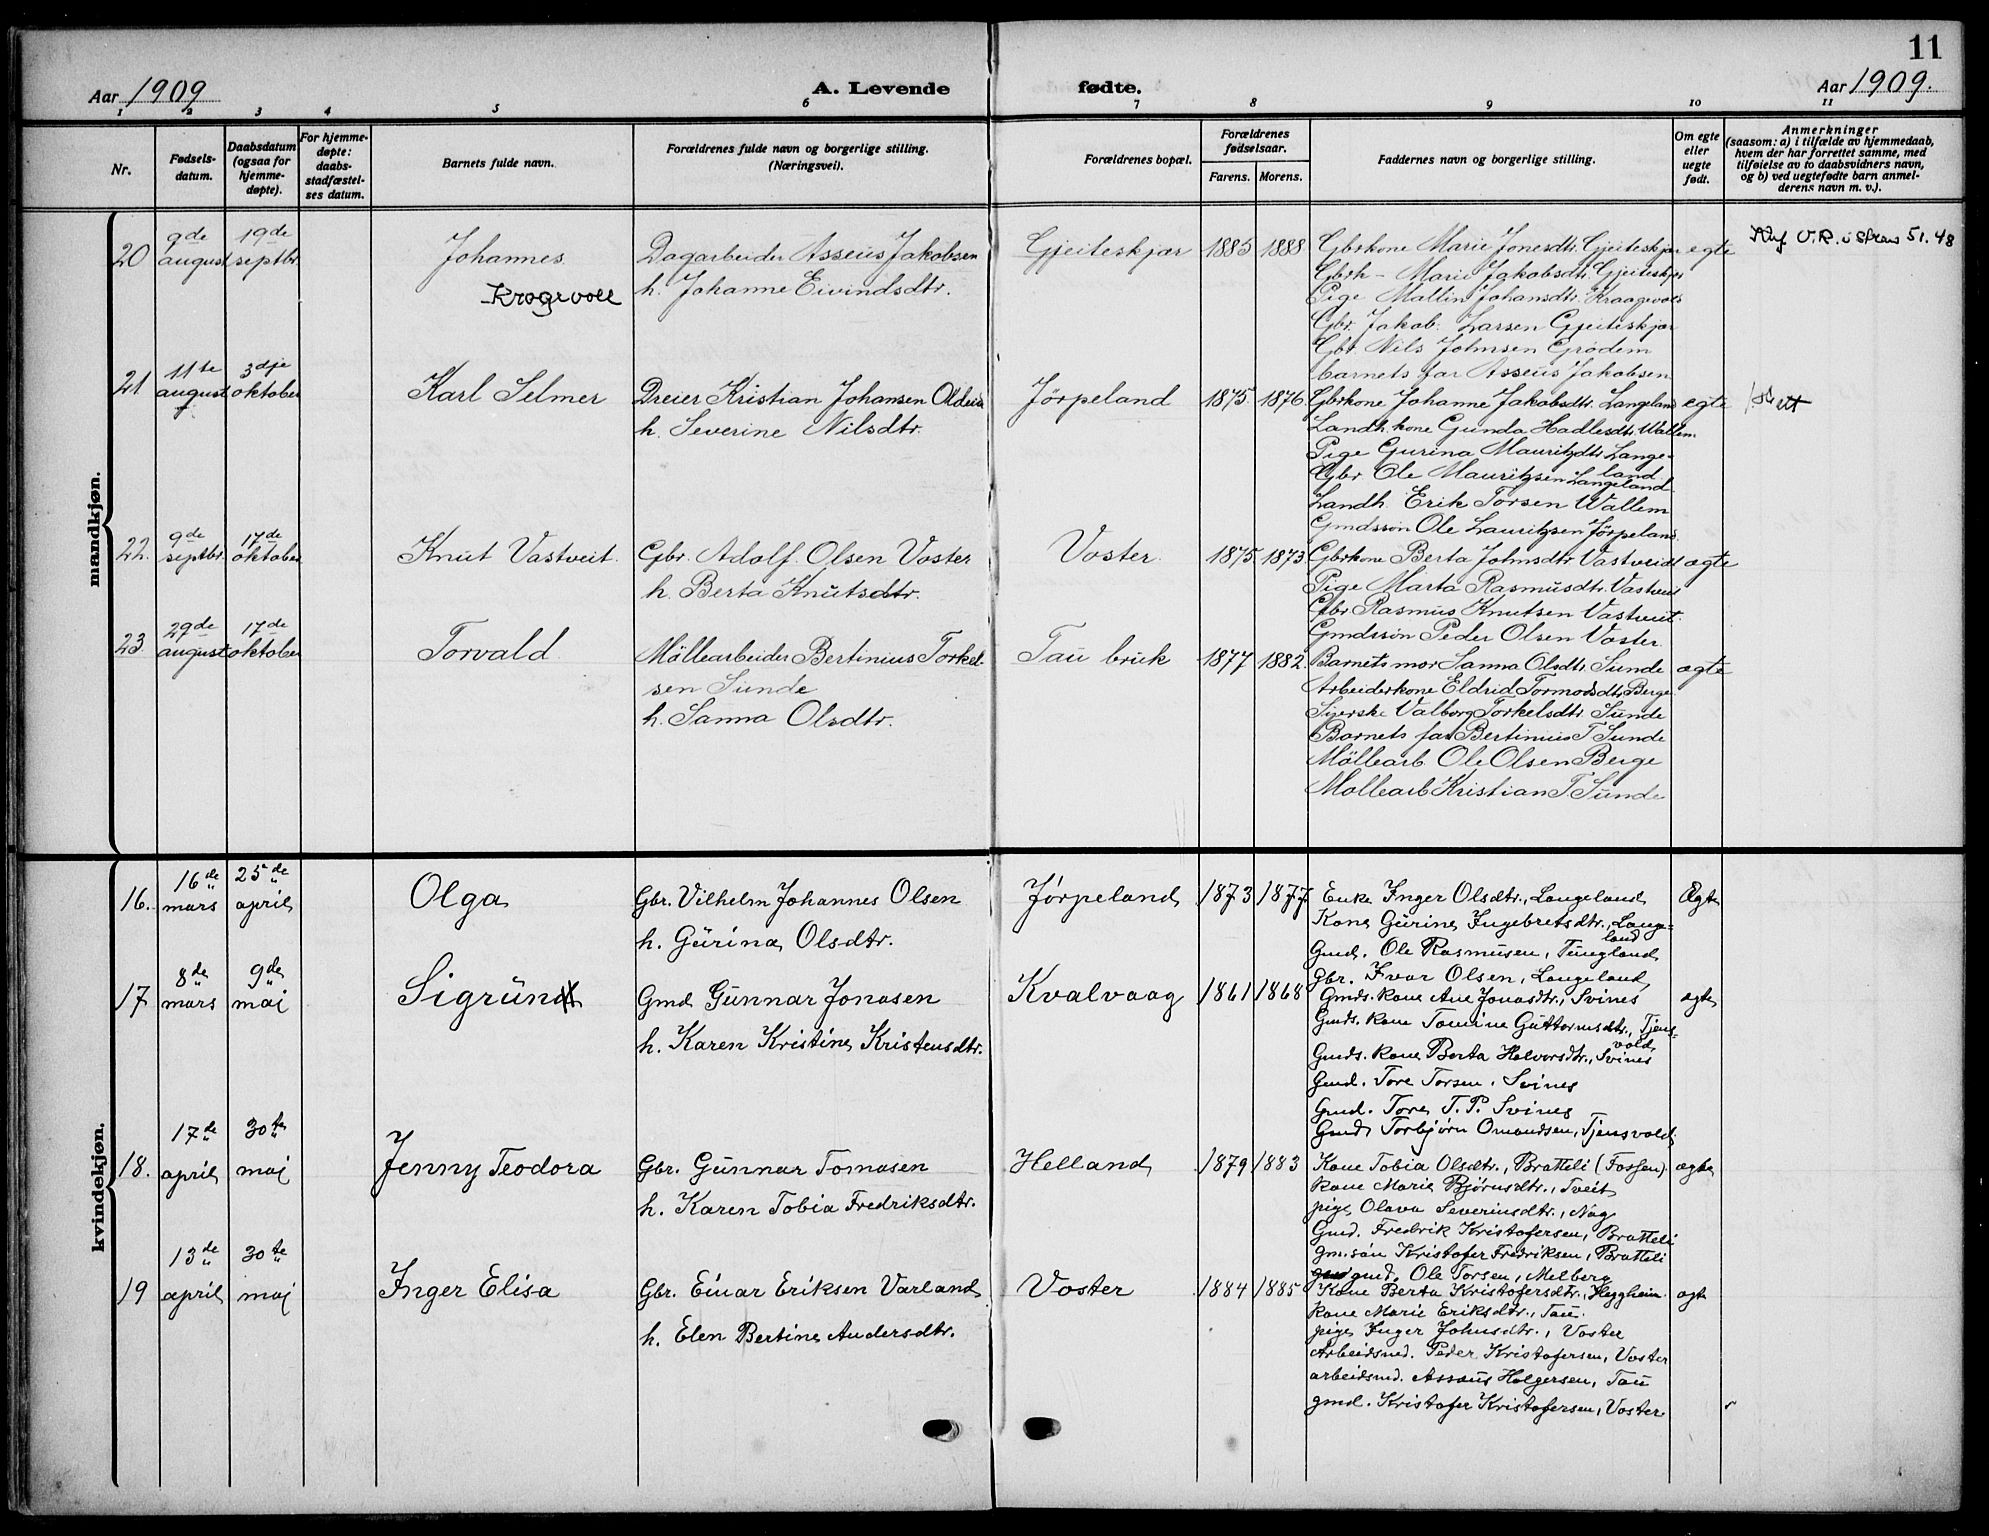 11
Aar 1909
A. Levende
fødte.
Aar 1909.
1 2 3 4 5 6 7 8 9 10 11
Nr.
Fødsels-
datum.
Daabsdatum
(ogsaa for
hjemme-
døpte).
For hjemme-
døpte:
daabs-
stadfæstel-
ses datum.
Barnets fulde navn.
Forældrenes fulde navn og borgerlige stilling.
(Næringsvei).
Forældrenes bopæl.
Forældrenes
fødselsaar.
Farens. Morens.
Faddernes navn og borgerlige stilling.
Om egte
eller
uegte
født.
Anmerkninger
(saasom: a) i tilfælde av hjemmedaab,
hvem der har forrettet samme, med
tilføielse av to daabsvidners navn,
og b) ved uegtefødte barn anmel-
derens navn m. v.).
mandkjøn.
20
9de
august
19de
septbr.
Johannes
Krogevoll
Dagarbeider Asseus Jakobsen
h. Johanne Eivindsdtr.
Gjeiteskjær
1885 1888
Gbrkone Marie Jonesdtr. Gjeiteskjær
Gbrk - Marie Jakobsdtr. Gjeiteskjær
Pige Mallin Johansdtr. Kraagevols
Gbr. Jakob Larsen Gjeiteskjær
Gbr. Nils Johnsen Grødem
barnets far Asseus Jakobsen
egte
51.48
21
11te
august
3dje
oktober
Karl Selmer
Dreier Kristian Johansen Oldeide
h. Severine Nilsdtr.
Jörpeland
1875 1876
Gbrkone Johanne Jakobsdtr. Langeland
Landh.kone Gunda Hadlesdtr. Wallem
Pige Gurina Mauritzdtr. Lange-
land
Gbr Ole Mauritzsen Langeland
Landh. Erik Torsen Wallem
Gmdssön Ole Lauritzsen Jörpeland
egte
22.
9de
septbr.
17de
oktober
Knut Vastveit.
Gbr. Adolf Olsen Voster
h. Berta Knutsdtr.
Voster.
1875 1873
Gbrkone Berta Johnsdtr. Vastveidt
Pige Marta Rasmusdtr. Vastveit
Gbr Rasmus Knutsen Vastveit.
Gmdssön Peder Olsen Voster
ægte
23.
29de
august
17de
oktober
Torvald
Möllearbeider Bertinius Torkel-
sen Sunde
h. Sanna Olsdtr.
Tau bruk
1877 1882
Barnets mor Sanna Olsdtr. Sunde
Arbeiderkone Eldrid Tormodsdtr. Berge
Sjerske Valborg Torkelsdtr. Sunde
Barnets far Bertinius T Sunde
Möllearb Ole Olsen Berge
Möllearb Kristian T Sunde
ægte
kvindekjøn.
16.
16de
mars
25de
april
Olga
Gbr. Vilhelm Johannes Olsen
h. Gurina Olsdtr.
Jørpeland
1873 1877
Enke Inger Olsdtr., Langeland
Kone Gurine Ingebretsdtr., Lange-
land
Gmd. Ole Rasmusen, Tungland
Gbr. Ivar Olsen, Langeland
Ægte
17
8de
mars
9de
maj
Sigrun
Gmd. Gunnar Jonasen
h. Karen Kristine Kristensdtr.
Kvalvaag
1861 1868
Gmds. kone Ane Jonasdtr., Svines
Gmds. kone Tomine Guttormsdtr., Tjens-
vold
Gmds. kone Berta Halvorsdtr., Svines
Gmd. Tore Torsen. Svines
Gmd. Tore T. P. Svines
Gmd. Torbjørn Omundsen, Tjensvold
ægte
18.
17de
april
30te
maj
Jenny Teodora
Gbr. Gunnar Tomasen
h. Karen Tobia Fredriksdtr.
Helland
1879 1883
Kone Tobia Olsdtr., Bratteli (Fossen)
kone Marie Bjørnsdtr., Tveit
pige Olava Severinsdtr., Nag
Gmd. Fredrik Kristofersen, Bratteli
gm.søn Kristofer Fredriksen, Bratteli
gmd. Ole Torsen, Melberg
ægte
19
13de
april
30te
maj
Inger Elisa
Gbr. Einar Eriksen Varland
h. Elen Bertine Andersdtr.
Voster
1884 1885
Kone Berta Kristofersdtr., Heggheim
kone Marie Eriksdtr., Tau.
pige Inger Johnsdtr., Voster
Arbeidsmd. Peder Kristofersen, Voster
arbeidsmd. Assaus Holgersen, Tau
gmd. Kristofer Kristofersen, Voster
ægte